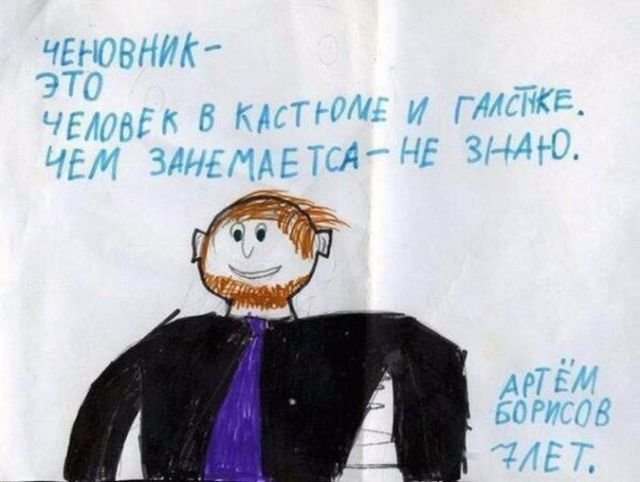 ЧЕНОВНИК -
ЭТО
ЧЕЛОВЕК В КАСТЮМЕ И ГАЛСТКЕ.
ЧЕМ ЗАНЕМАЕТСА - НЕ ЗНАЮ.
АРТЁМ
БОРИСОВ
7 ЛЕТ.